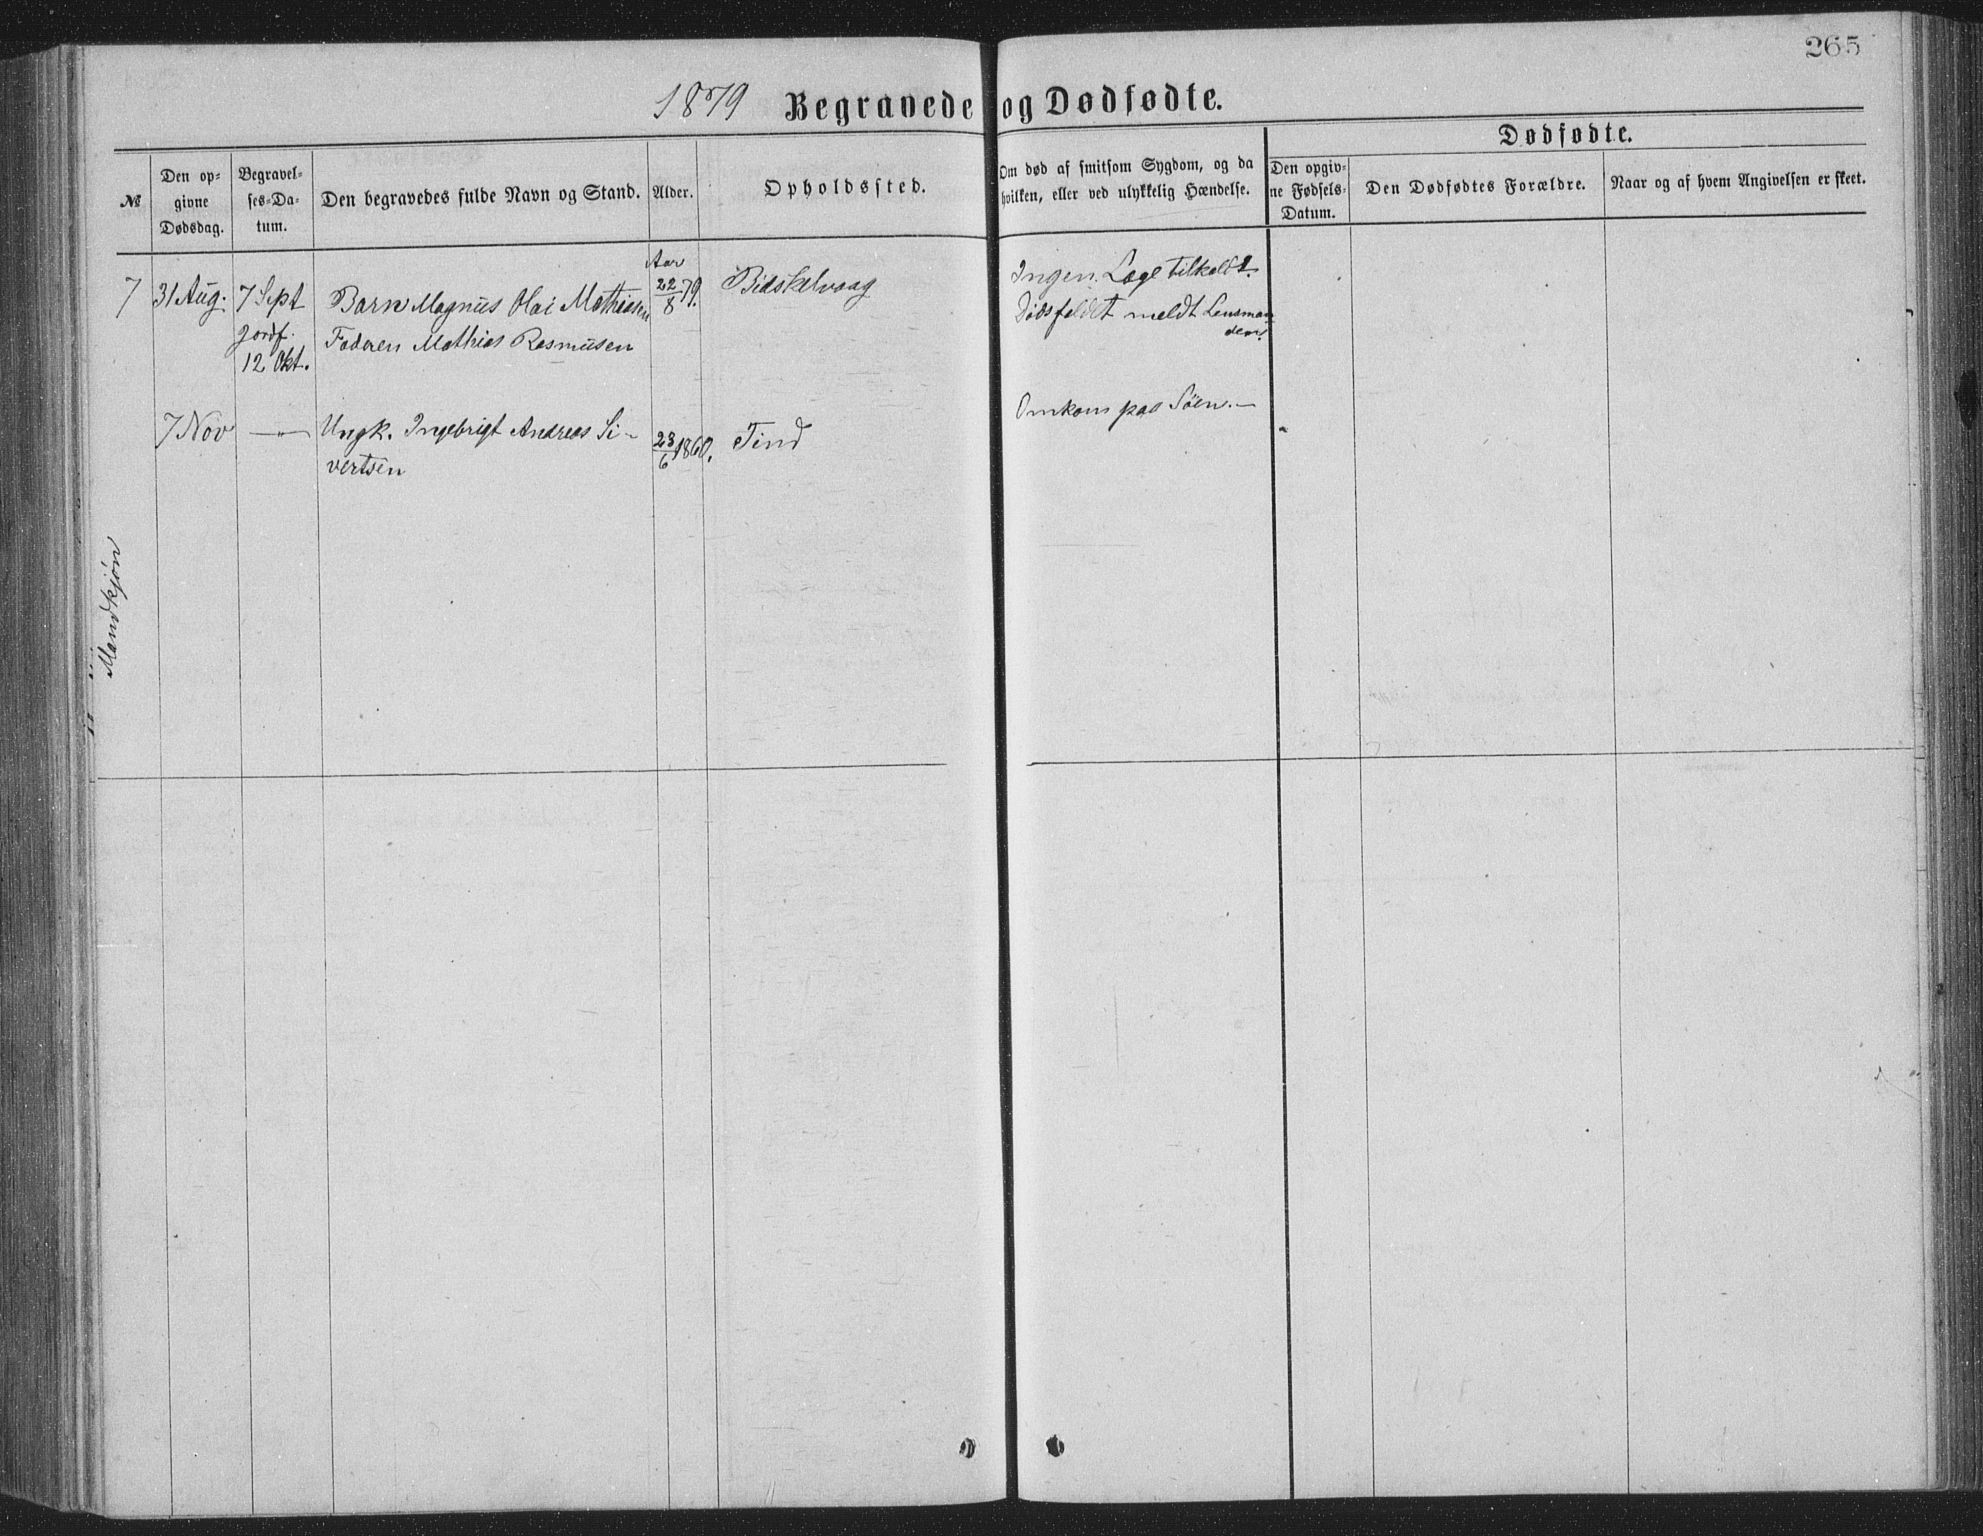 265
1879 Begravede og Dødfødte.
Dødfødte.
№
Den op-
givne
Dødsdag.
Begravel-
ses-Da-
tum.
Den begravedes fulde Navn og Stand.
Alder.
Opholdssted.
Om død af smitsom Sygdom, og da
hvilken, eller ved ulykkelig Hændelse.
Den opgiv-
ne Fødsels-
Datum.
Den Dødfødtes Forældre.
Naar og af hvem Angivelsen er skeet.
Aar
7 31 Aug. 7 Sept Barn Magnus Olai Mathiasen 22/8 79. Bidskelvaag Ingen Læge tilkaldt.
Jordf. Faderen Mathias Rasmusen Dødsfaldet meldt Lensman
den
12 Okt.
7 Nov —„— Ungk. Ingebrigt Andreas Si- 23/6 1860. Tind Omkom paa Søen.—
vertsen
Mandkjøn